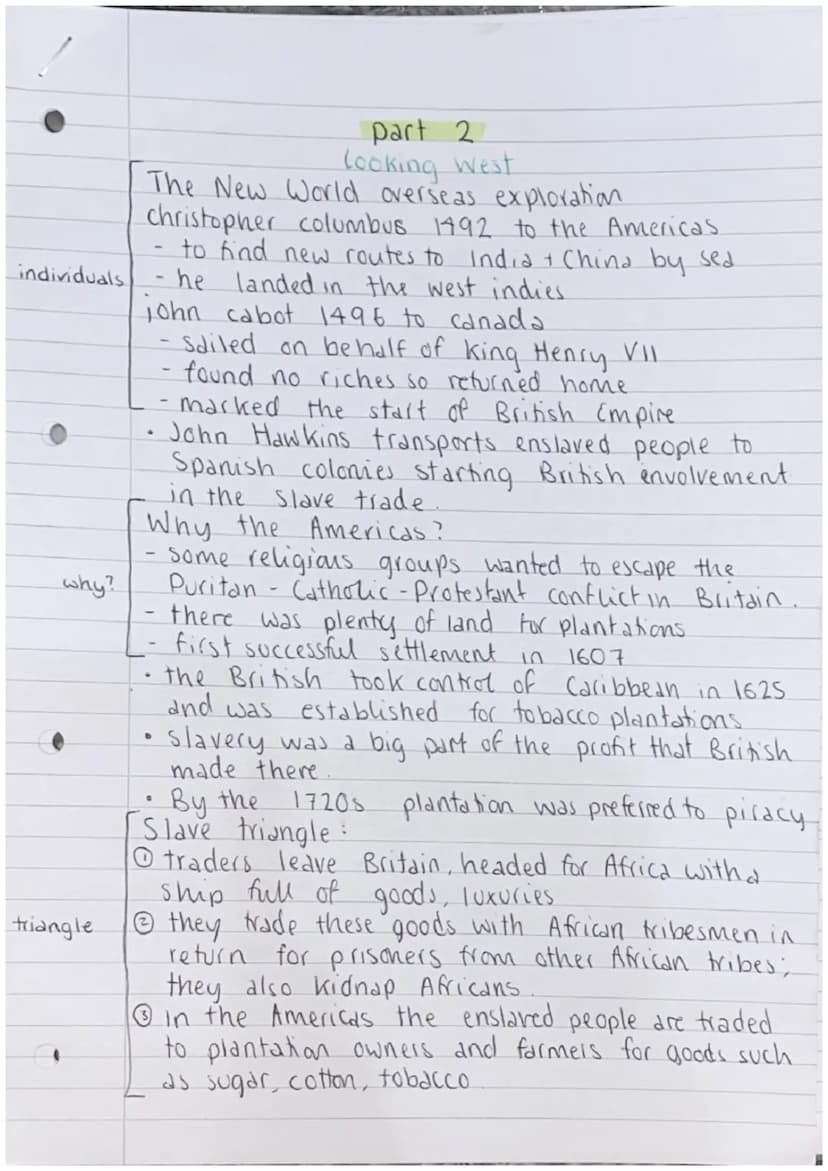 part 2
Looking West
The New World overseas exploration
christopher columbus 1492 to the Americas
- to find new routes to India + China by sea
individuals
- he landed in the west indies
john cabot 1496 to canada
- sailed on behalf of King Henry VII
- found no riches so returned home
- marked the start of British Empire
• John Hawkins transports enslaved people to
Spanish colonies starting British envolvement
in the slave trade.
Why the Americas?
- some religious groups wanted to escape the
why?
Puritan - Catholic - Protestant conflict in Britain.
- there was plenty of land for plantations
- first successful settlement in 1607
• the British took control of Caribbean in 1625
and was established for tobacco plantations
• slavery was a big part of the profit that British
made there.
• By the 1720s plantation was preferred to piracy
Slave triangle:
① traders leave Britain, headed for Africa with a
ship full of goods, luxuries
triangle
② they trade these goods with African tribesmen in
return for prisoners from other African tribes;
they also kidnap Africans.
③ in the Americas the enslaved people are traded
to plantation owners and farmers for goods such
as sugar, cotton, tobacco